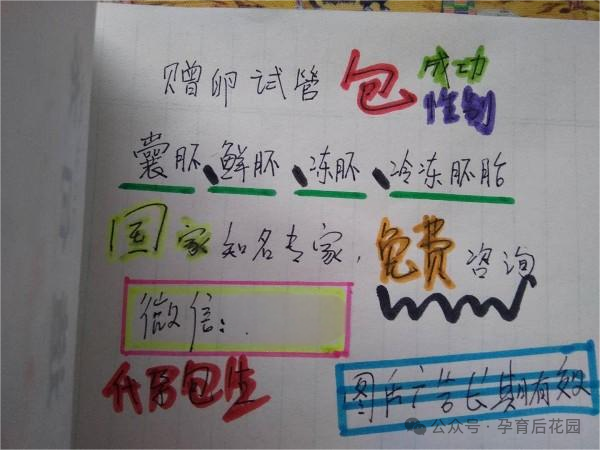 赠卵试管包成功
性别
囊胚、鲜胚、冻胚、冷冻胚胎
国家知名专家,免费咨询
微信:
代孕包生
图片广告长期有效
公众号·孕育后花园